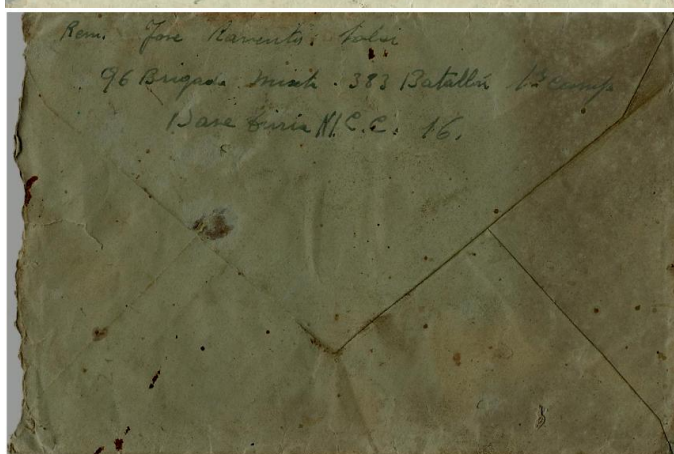 Rem. Jose Raventós
96 Brigada Mixta. 383 Batallón 1ª comp
Base Turia C.C. 16.